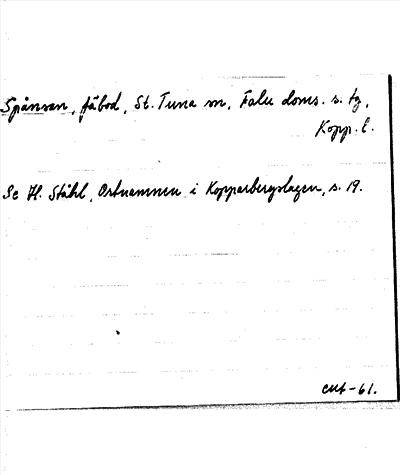 Spånsan, fäbod, St. Tuna sn, Falu doms. s. tg,
Kopp. l.
Se H. Ståhl, Ortnamnen i Kopparbergslagen, s. 19.
-61.